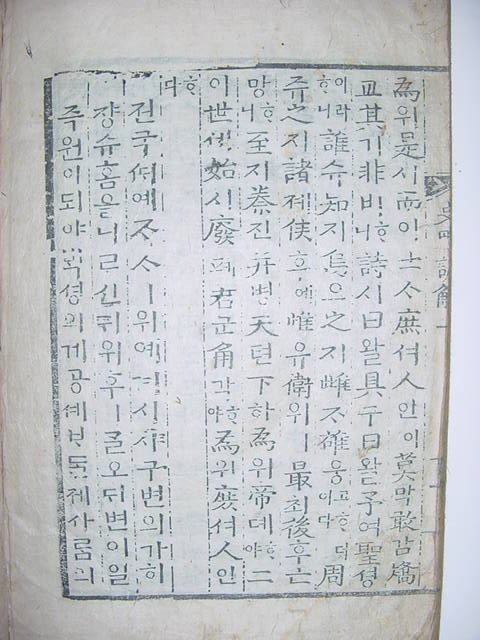 爲위是시而이士ᄉᆞ庶셔人인이莫막敢감矯
교其기非비ᄒᆞ니詩시曰왈具구曰왈予여聖셩
이라ᄒᆞ니誰슈知지烏오之지雌ᄌᆞ雄웅고ᄒᆞ더이다周
쥬之지諸졔侯후에唯유衛위ㅣ最최後후亡
망ᄒᆞ니至지秦진幷병天텬下하爲위帝뎨ᄒᆞ야二
이世셰始시廢폐君군角각ᄒᆞ야爲위庶셔人인
ᄒᆞ다
젼국셰예ᄌᆞᄉᆞㅣ위예겨시샤구변의가히
쟝슈홈을니ᄅᆞ신ᄃᆡ위후ㅣᄀᆞᆯ오ᄃᆡ변이일
즉원이되야ᄇᆡᆨ셩의게공셰바들졔사ᄅᆞᆷ의